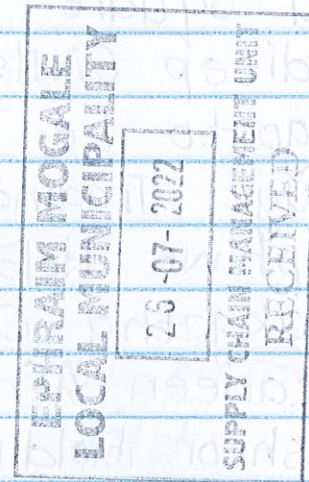 EPHRAIM MOGALE
LOCAL MUNICIPALITY
26 -07- 2022
SUPPLY CHAIN MANAGEMENT UNIT
RECEIVED